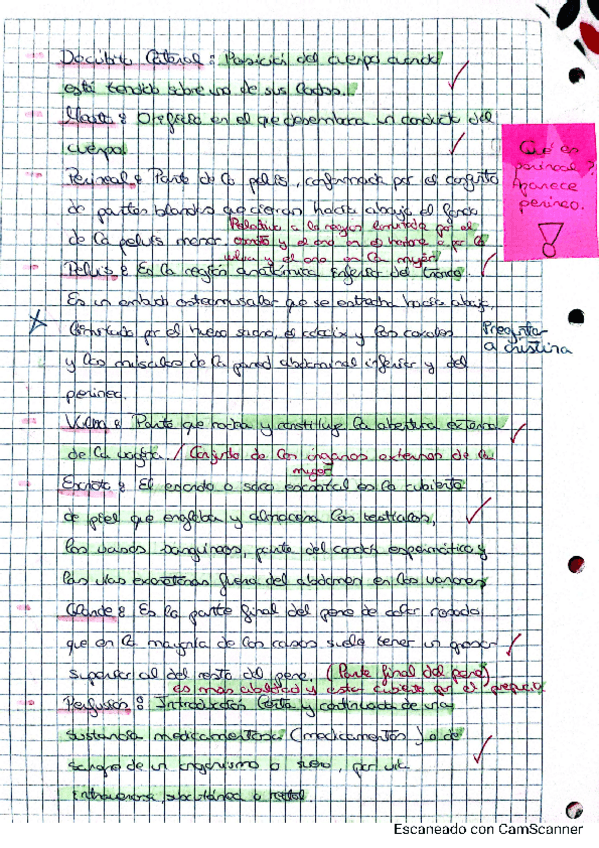 Decúbito Lateral: Posición del cuerpo cuando
está tendido sobre uno de sus lados.
Meato: Orificio en el que desemboca un conducto del
cuerpo.
Perineal: Parte de la pelvis, conformada por el conjunto
de partes blandas que cierran hacia abajo el
de la pelvis menor. Relativo a la region limitada por el
escroto y el ano en el hombre o por la
vulva y el ano en la mujer
Qué es
perineal?
Aparece
perineo.
!
Pelvis: Es la región anatómica inferior del tronco.
Es un embudo osteomuscular que se estrecha hacia abajo,
constituido por el hueso sacro, el cóccix y los coxales
y los músculos de la pared abdominal inferior y del
perineo.
Preguntar
a cristina
Vulva: Parte que rodea y constituye la abertura externa
de la vagina. / Conjunto de los órganos externos de la
mujer
Escroto: El escroto o saco escrotal es la cubierta
de piel que engloba y almacena los testículos,
los vasos sanguíneos, parte del cordón espermático y
las vías excretoras fuera del abdomen en los varones
Glande: Es la parte final del pene de color rosado
que en la mayoría de los casos suele tener un grosor
superior al del resto del pene. (Parte final del pene)
es más abultada y estar cubierto por el prepucio
Perfusión: Introducción lenta y continuada de una
sustancia medicamentosa (medicamentos) o de
sangre de un organismo o suero, por vía
intravenosa, subcutánea o rectal.
Escaneado con CamScanner